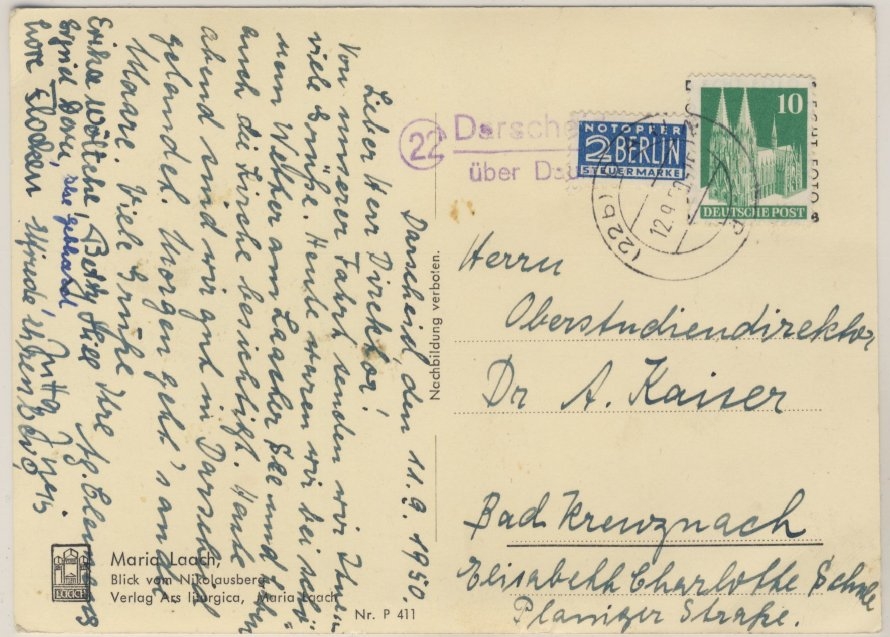 Darscheid, den 11.9.1950.
Lieber Herr Direktor!
Von unserer Fahrt senden wir Ihnen
viele Grüße. Heute waren wir bei schö-
nem Wetter am Laacher See und haben
auch die Kirche besichtigt. Heute
abend sind wir gut in Darscheid
gelandet. Morgen geht's an die
Maare. Viele Grüße
Ihre
Erika Betty Hill
Sigrid
Lore
22 Darsche
über Dau
NOTOPFER
2 BERLIN
STEUERMARKE
10
DEUTSCHE POST
(22b)
12.9.50
Nachbildung verboten.
Herrn
Oberstudiendirektor
Dr A. Kaiser
Bad Kreuznach
Elisabeth Charlotte Schule
Planiger Straße.
LAACH
Maria Laach,
Blick vom Nikolausberg
Verlag Ars liturgica, Maria Laach
Nr. P 411